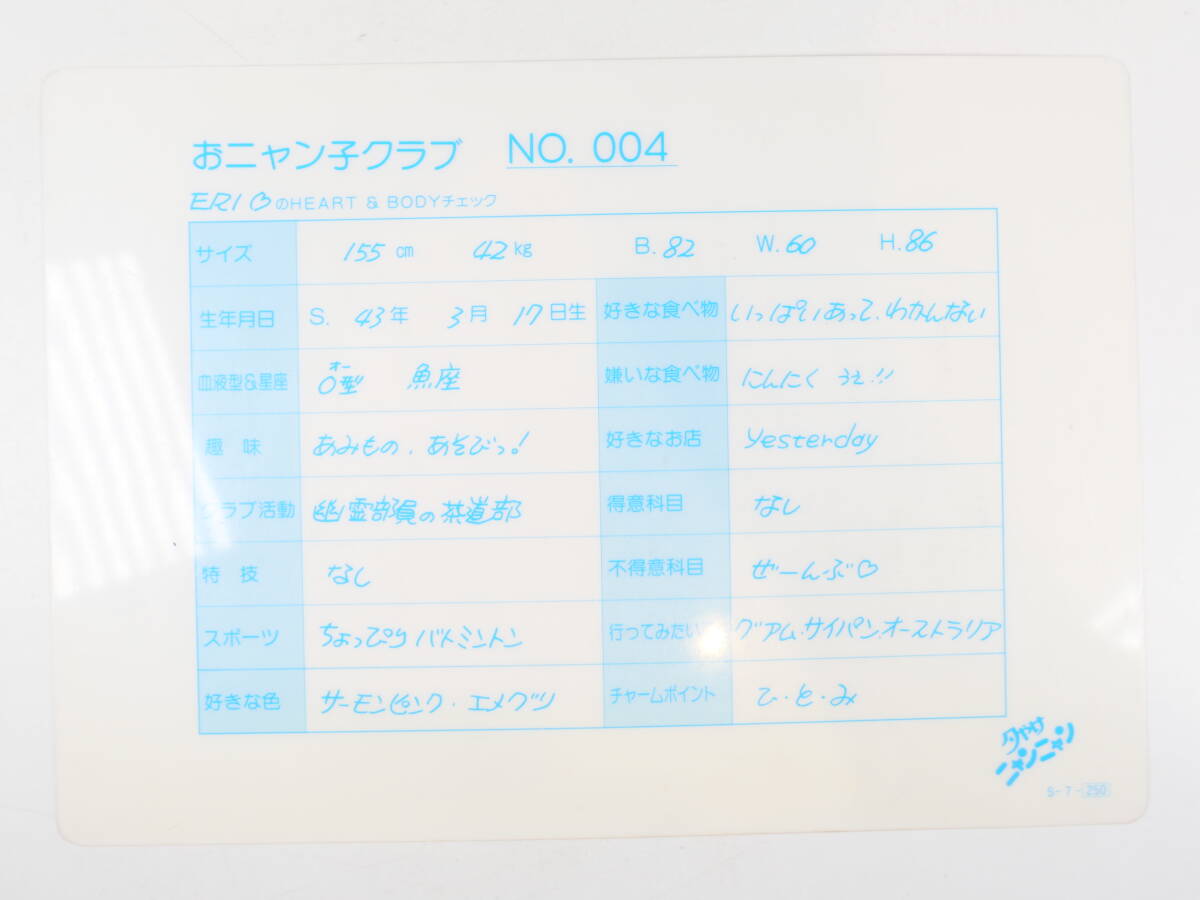 おニャン子クラブ NO. 004
ERI♡のHEART & BODYチェック
サイズ 155 cm 42 kg B. 82 W. 60 H. 86
生年月日 S. 43年 3月 17日生 好きな食べ物 いっぱいあって、わかんない
血液型&星座 オー O型 魚座 嫌いな食べ物 にんにく うぇ!!
趣味 あみもの、あそびっ! 好きなお店 yesterday
クラブ活動 幽霊部員の茶道部 得意科目 なし
特技 なし 不得意科目 ぜーんぶ♡
スポーツ ちょっぴり バトミントン 行ってみたい グアム・サイパン、オーストラリア
好きな色 サーモンピンク・エメグリ チャームポイント ひ・と・み
夕やけ
ニャンニャン
S-7-250